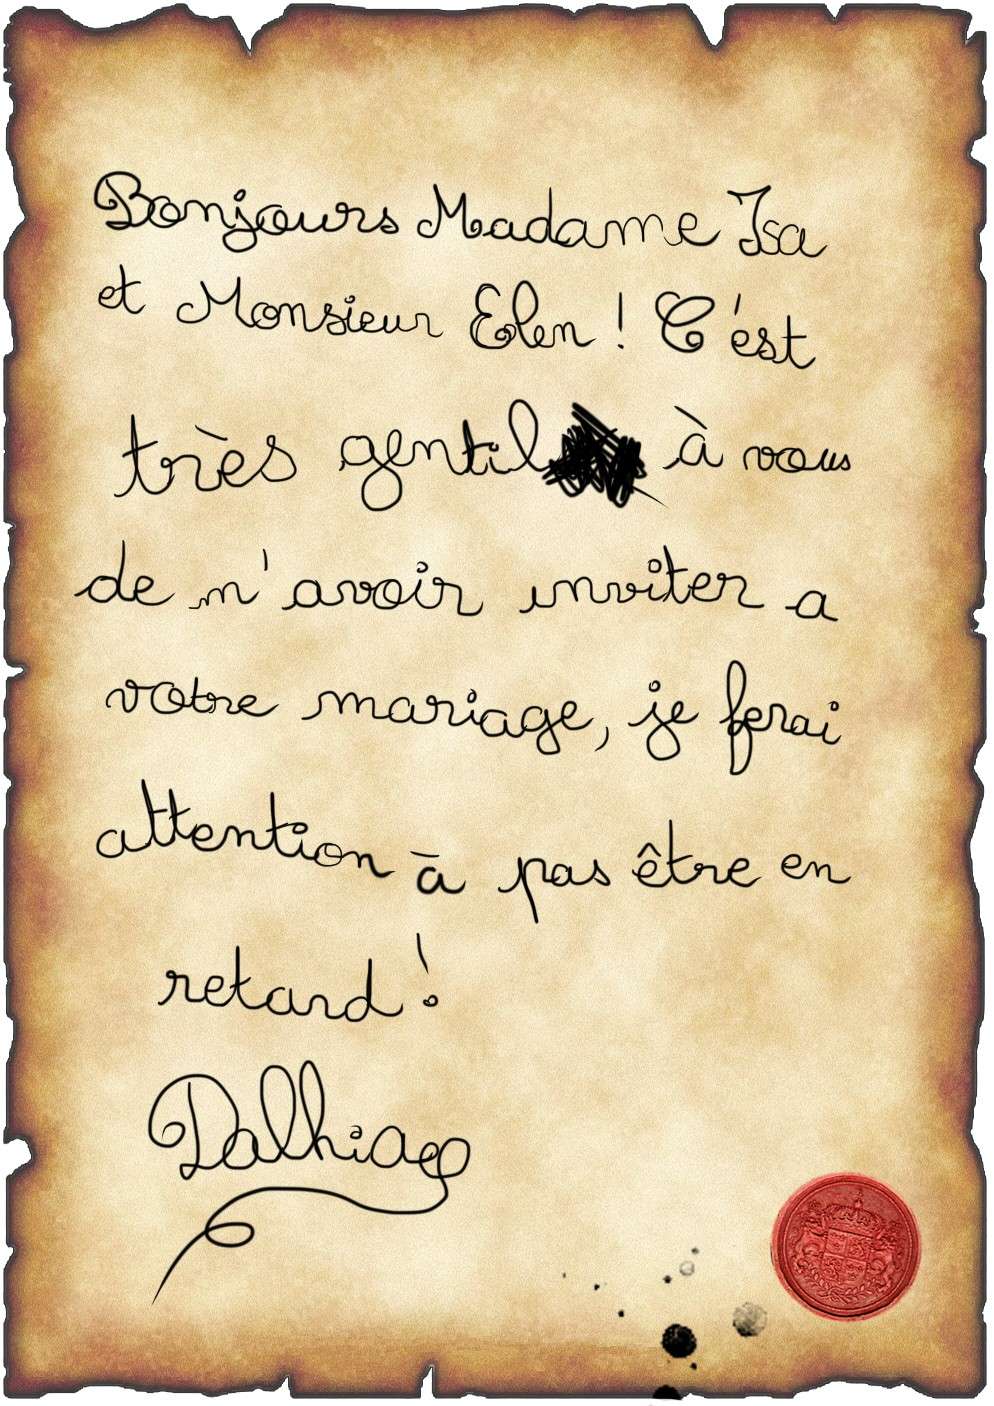 Bonjours Madame Isa
et Monsieur Elen ! C'est
très gentil à vous
de m'avoir inviter a
votre mariage, je ferai
attention à pas être en
retard !
Dalhia